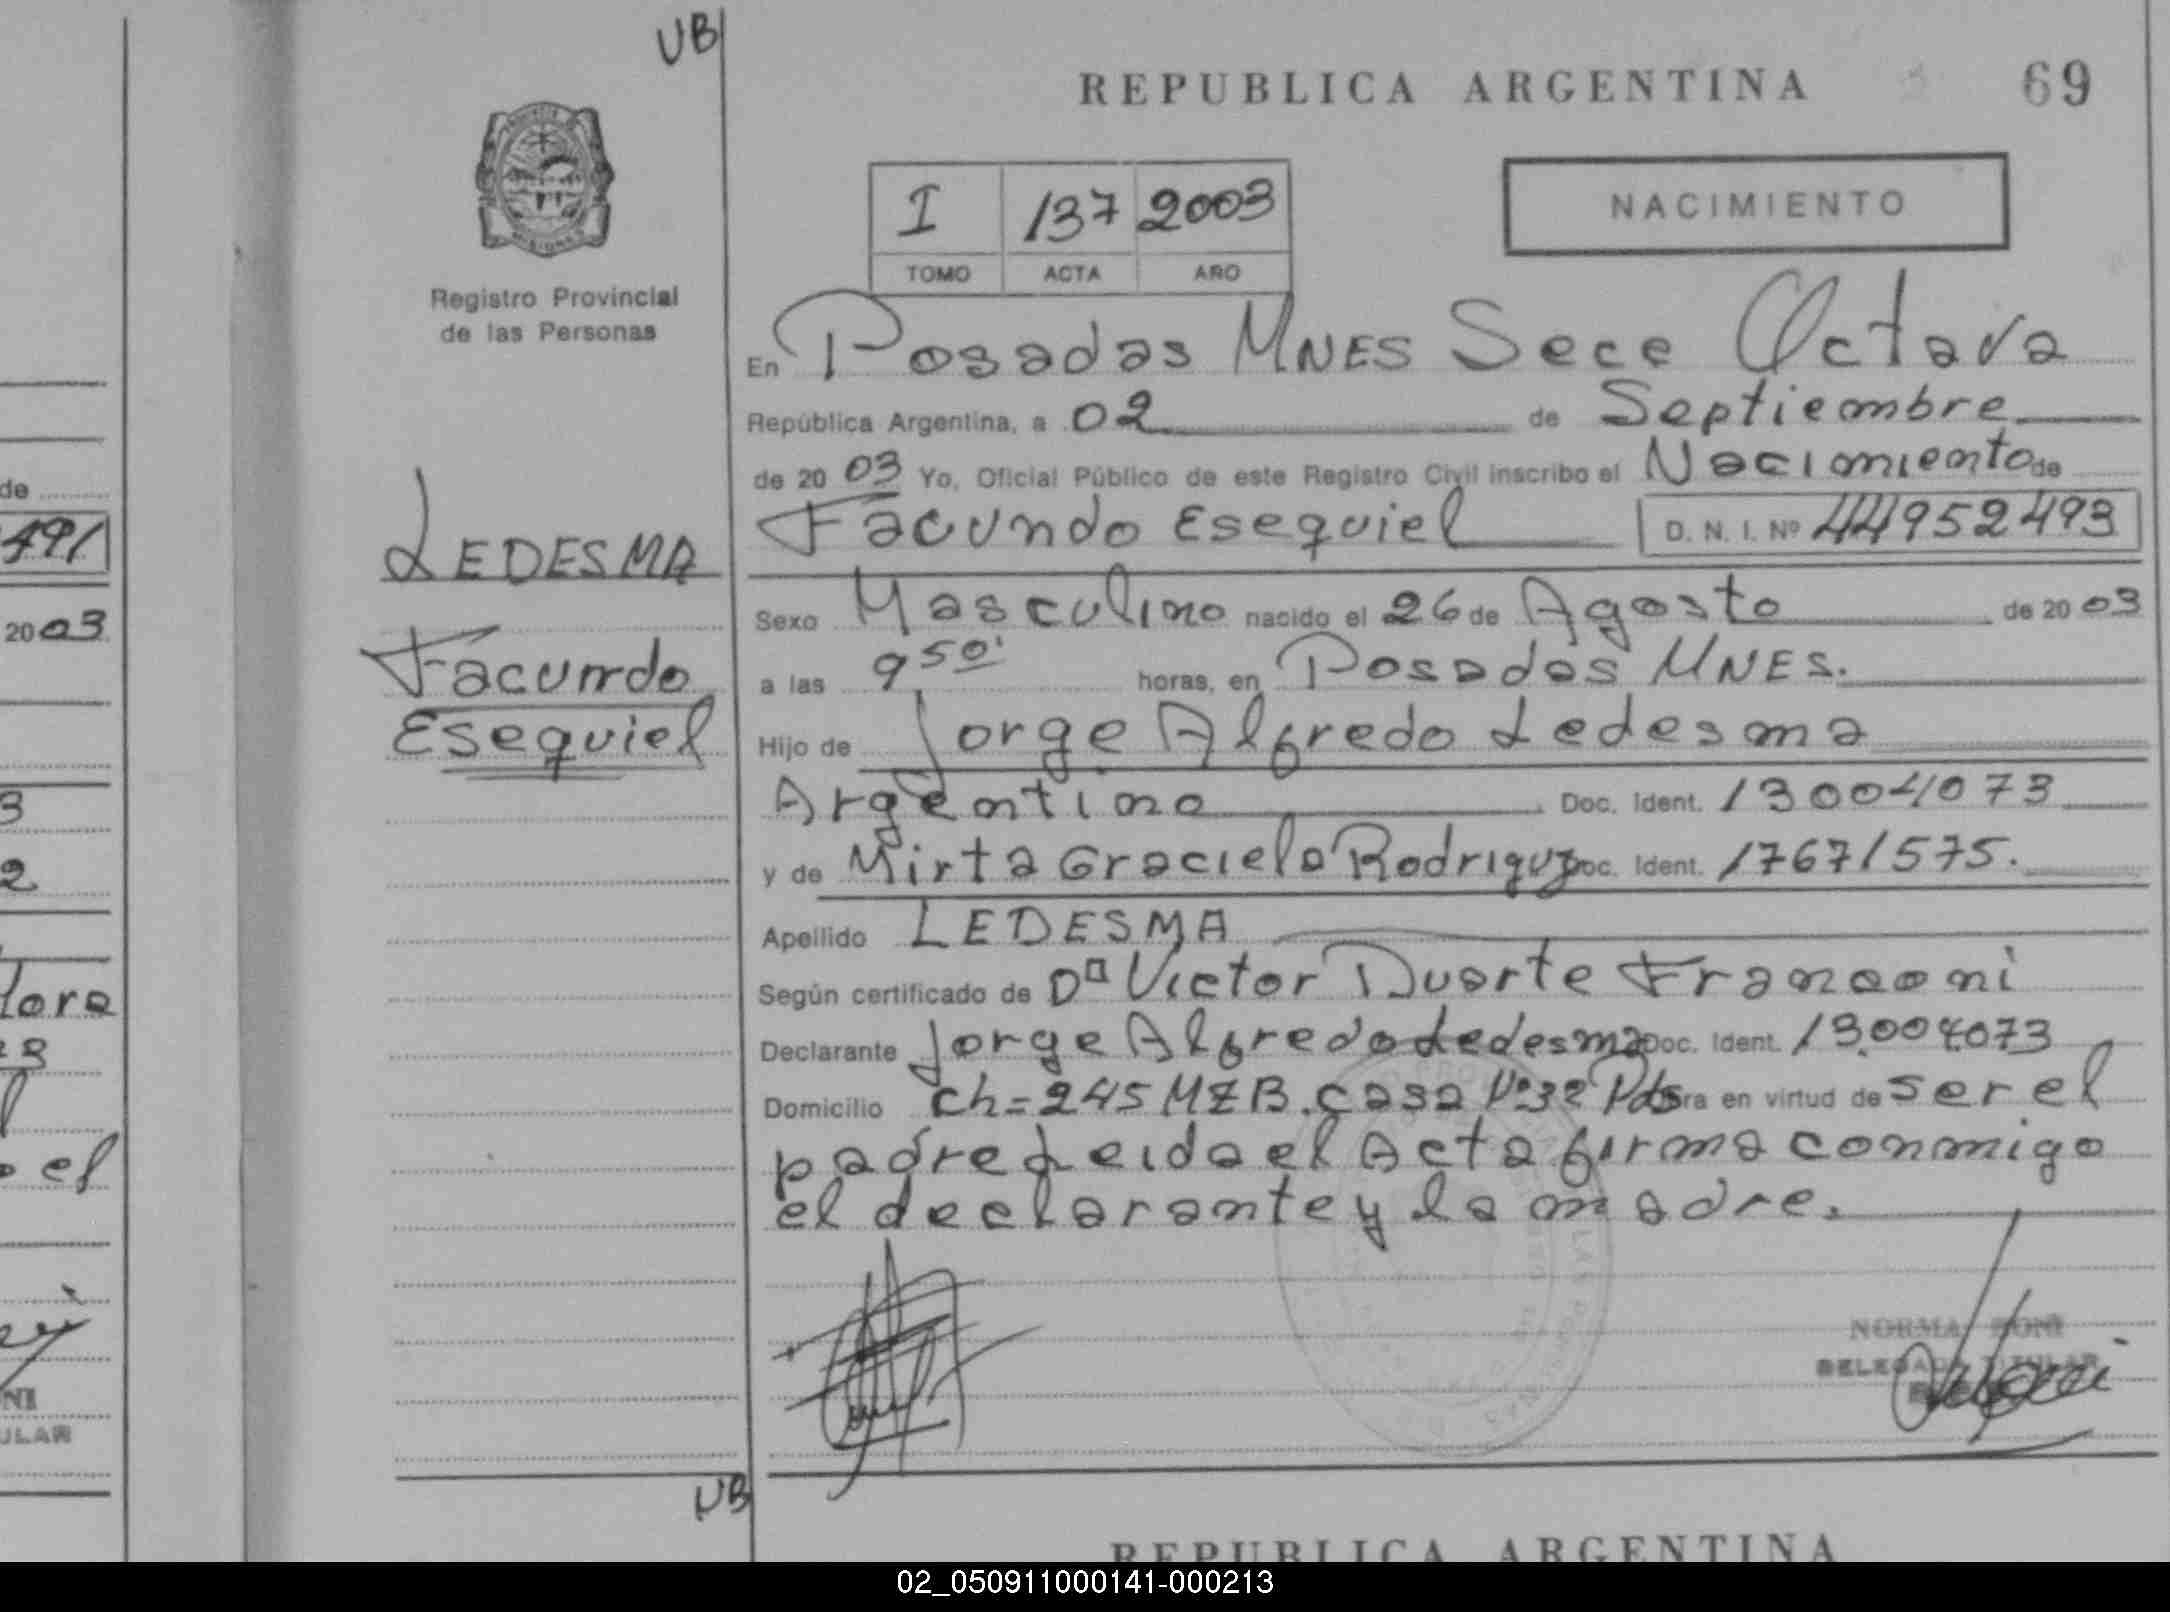 UB
REPUBLICA ARGENTINA
69
I 137 2003
TOMO ACTA AÑO
NACIMIENTO
MISIONES
Registro Provincial
de las Personas
En Posadas MNES Sece Octava
República Argentina, a 02 de Septiembre
de 20 03 Yo, Oficial Público de este Registro Civil inscribo el Nacimiento de
Facundo Esequiel D. N. I. Nº 44952493
LEDESMA
Facundo
Esequiel
Sexo Masculino nacido el 26 de Agosto de 20 03
a las 9 50' horas, en Posadas MNES.
Hijo de Jorge Alfredo Ledesma
Argentino Doc. Ident. 13004073
y de Mirta Graciela Rodriguz Doc. Ident. 17671575.
Apellido LEDESMA
Según certificado de Dª Victor Duarte
Declarante Jorge Alfredo Ledesma Doc. Ident. 13.004.073
Domicilio ch=245 MZ B. casa Nº 32 Pds ra en virtud de ser el
padre Leida el Acta firma conmigo
el declarante y la madre.
NORMA BONI
DELEGADA TITULAR
UB
REPUBLICA ARGENTINA
de
491
20 03
3
2
lora
23
l
o el
NI
ULAR
02_050911000141-000213